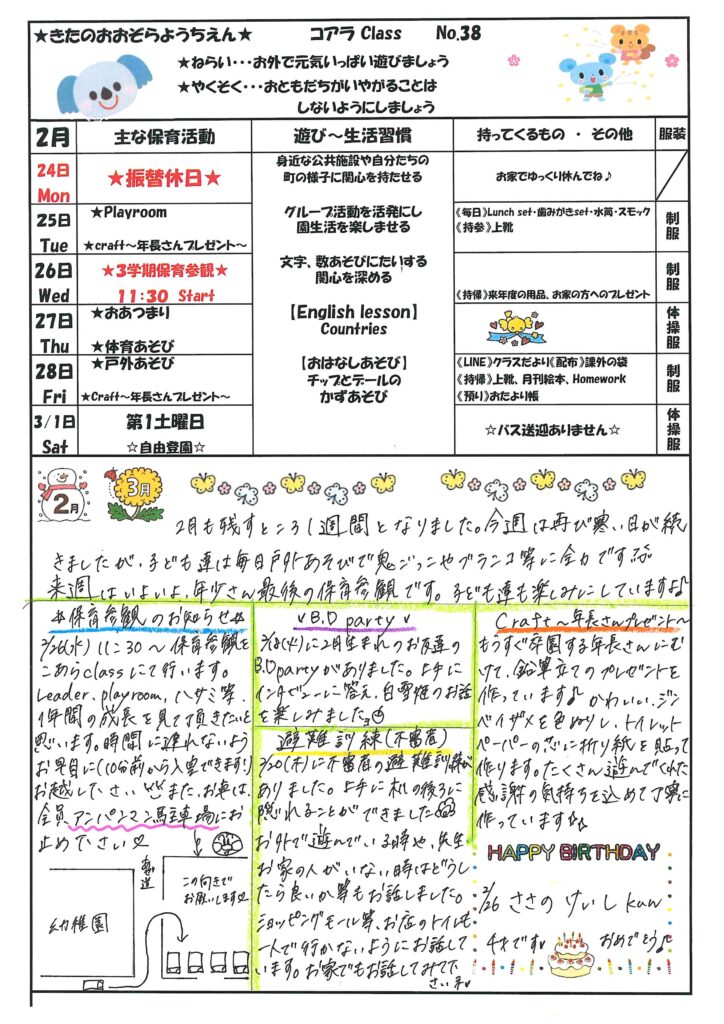 ★きたのおおぞらようちえん★ コアラ Class No.38
★ねらい・・・お外で元気いっぱい遊びましょう
★やくそく・・・おともだちがいやがることは
しないようにしましょう
2月 主な保育活動 遊び～生活習慣 持ってくるもの ・ その他 服装
24日 Mon
★振替休日★
身近な公共施設や自分たちの
町の様子に関心を持たせる
お家でゆっくり休んでね♪
25日 Tue
★Playroom
★craft～年長さんプレゼント～
グループ活動を活発にし
園生活を楽しませる
《毎日》Lunch set・歯みがきset・水筒・スモック
《持参》上靴
制服
26日 Wed
★3学期保育参観★
11:30 Start
文字、数あそびにたいする
関心を深める
《持帰》来年度の用品、お家の方へのプレゼント
制服
27日 Thu
★おあつまり
★体育あそび
【English lesson】
Countries
体操服
28日 Fri
★戸外あそび
★Craft～年長さんプレゼント～
【おはなしあそび】
チップとデールの
かずあそび
《LINE》クラスだより《配布》課外の袋
《持帰》上靴、月刊絵本、Homework
《預り》おたより帳
制服
3/1日 Sat
第1土曜日
☆自由登園☆
☆バス送迎ありません☆
体操服
2月
3月
2月も残すところ1週間となりました。今週は再び寒い日が続
きましたが、子ども達は毎日戸外あそびで鬼ごっこやブランコ等に全力です
来週はいよいよ、年少さん最後の保育参観です。子ども達も楽しみにしていますよ♪
☆保育参観のお知らせ☆
2/26(水) 11:30～保育参観を
こあらclassにて行います。
Leader、playroom、ハサミ等、
1年間の成長を見て頂きたいと
思います。時間に遅れないよう
お早目に(10分前から入室できます!)
お越し下さい また、お車は、
全員、アンパンマン駐車場にお
止め下さい♡
幼稚園
車道
この向きで
お願いします
♡B.D party♡
2/18(火)に2月生まれのお友達の
B.D partyがありました。上手に
インタビューに答え、白雪姫のお話
を楽しみました
避難訓練(不審者)
2/20(木)に不審者の避難訓練が
ありました。上手に机の後ろに
隠れることができました
お外で遊んでいる時や、先生、
お家の人がいない時はどうし
たら良いか等もお話しました。
ショッピングモール等、お店のトイレも
一人で行かないようにお話して
います。お家でもお話してみて下
さいネ
Craft～年長さんプレゼント～
もうすぐ卒園する年長さんにむ
けて、鉛筆立てのプレゼントを
作っています♪ かわいい、ジン
ベイザメを色ぬりし、トイレット
ペーパーの芯に折り紙を貼って
作ります。たくさん遊んでくれた
感謝の気持ちを込めて丁寧に
作っています♪
HAPPY BIRTHDAY
2/26 ささの けいし kun
4才です おめでとう♪